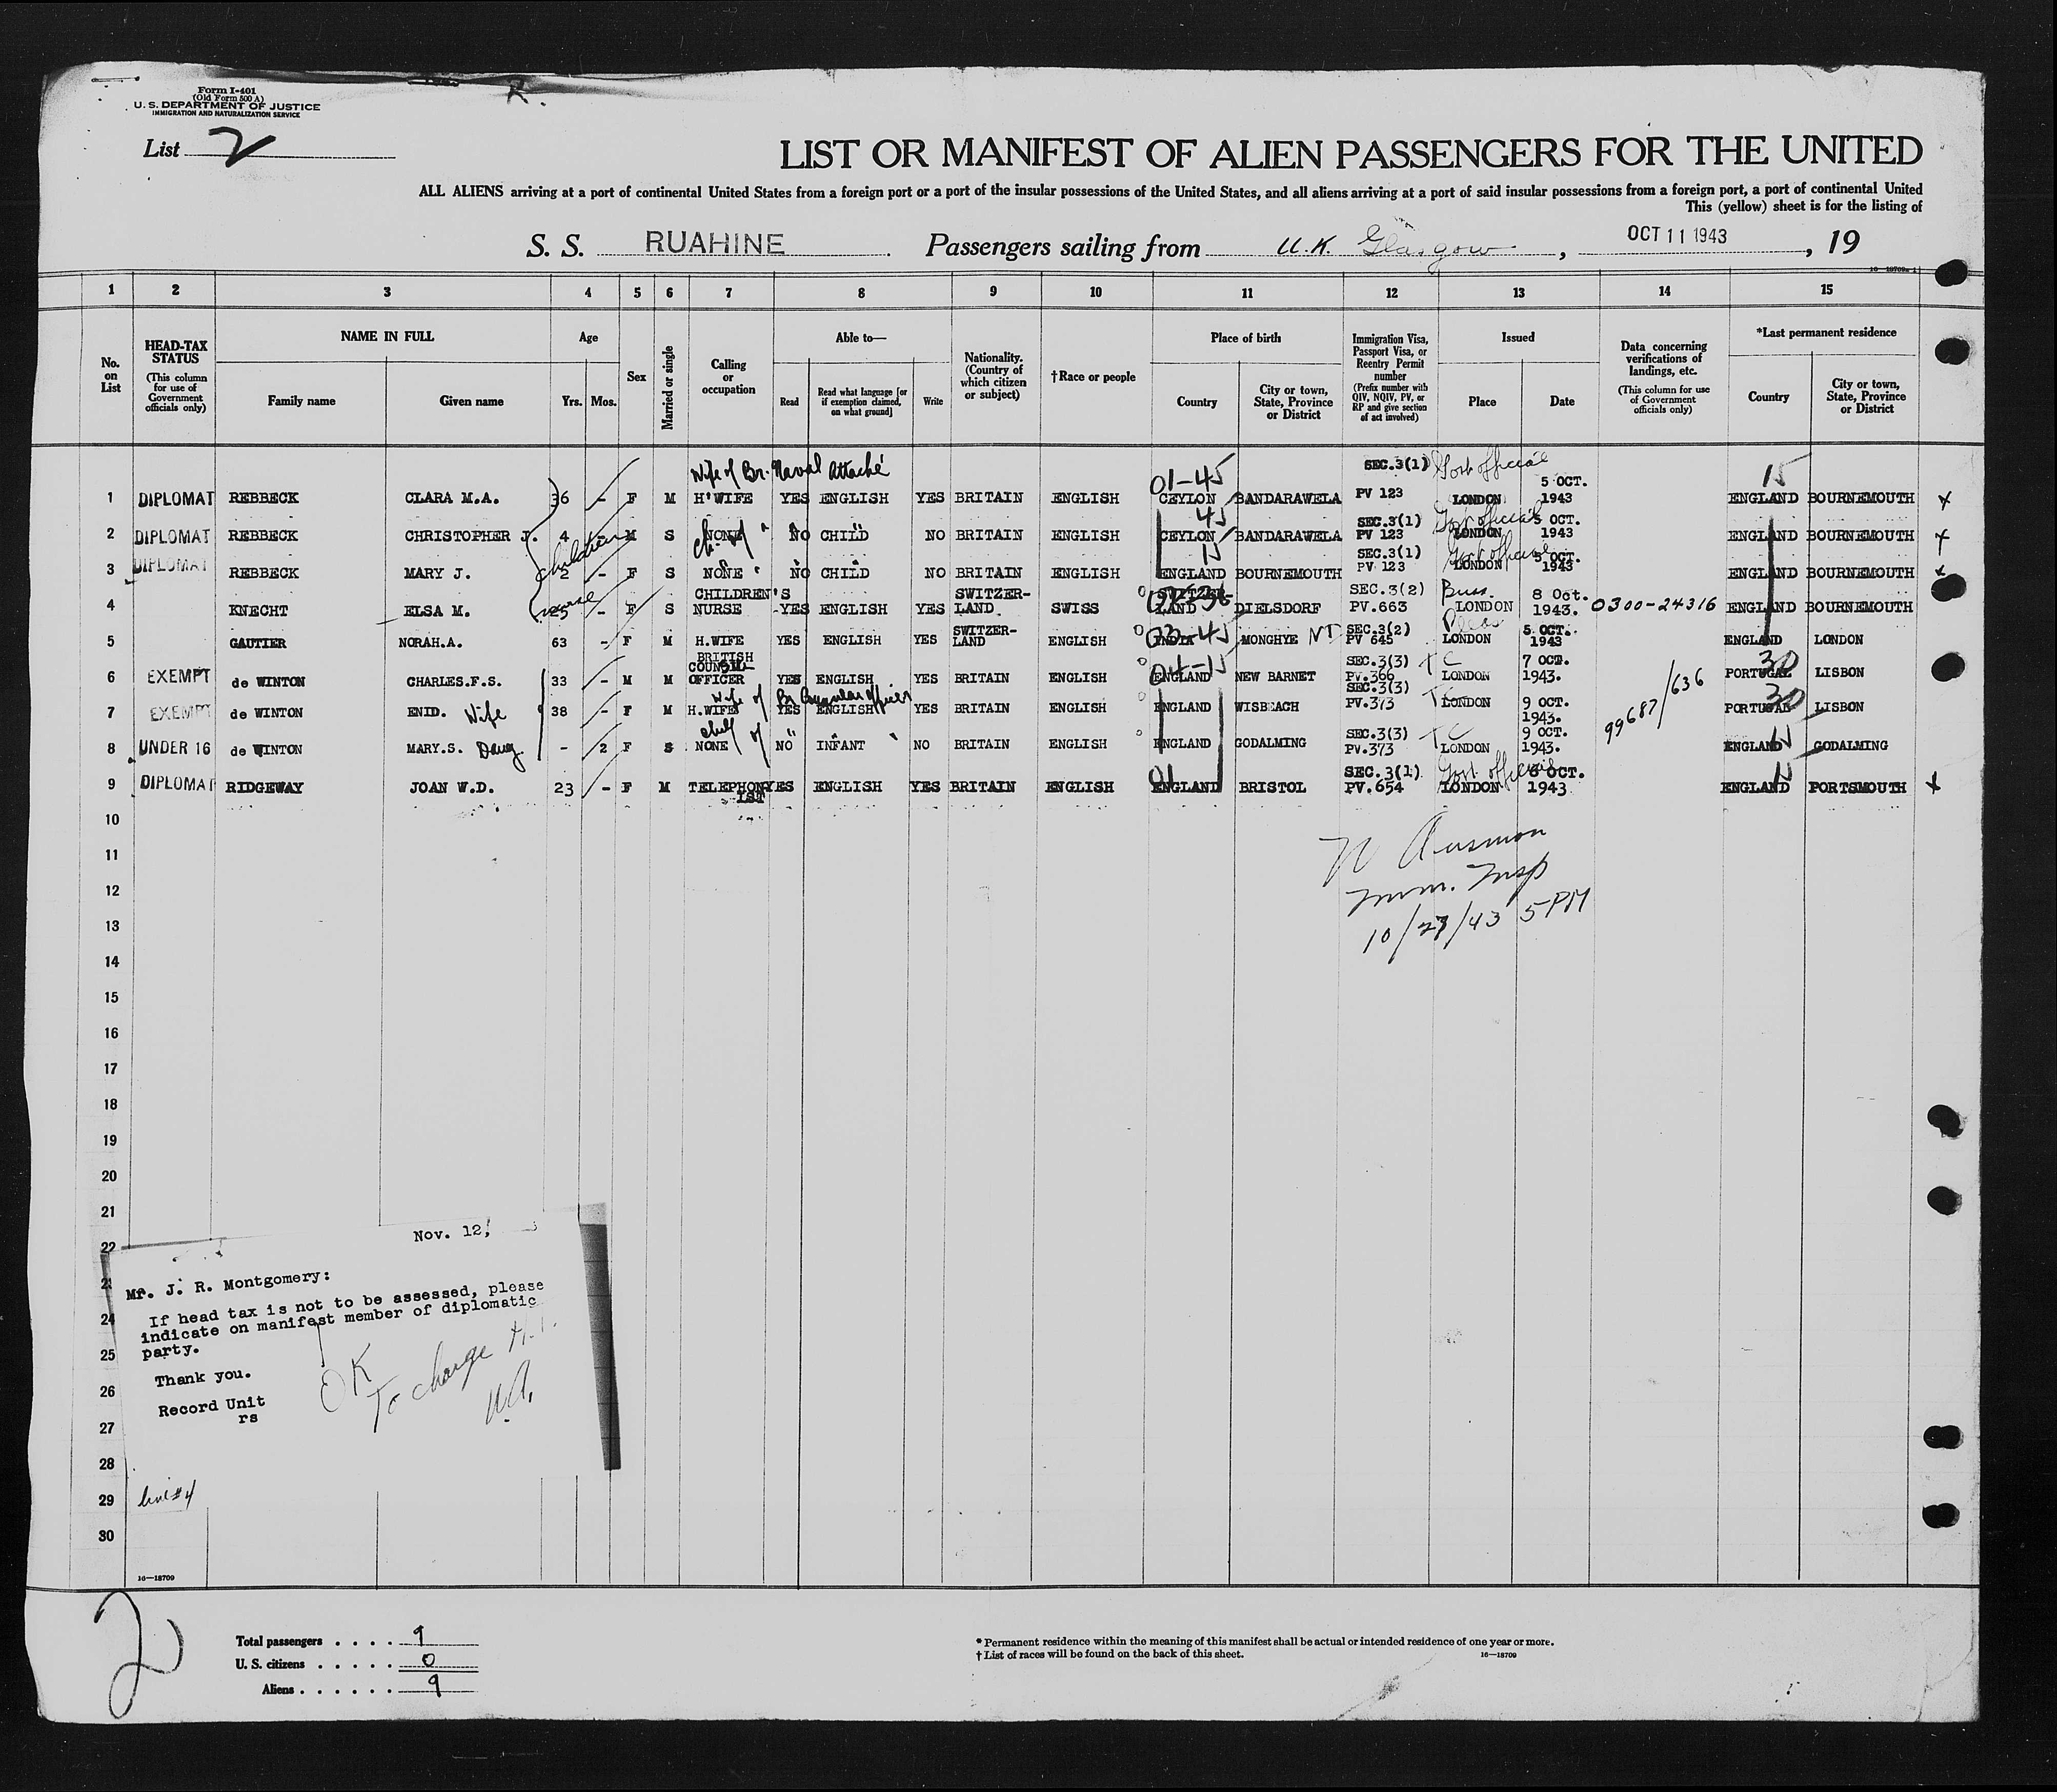 Form I-401
(Old Form 500 A)
U. S. DEPARTMENT OF JUSTICE
IMMIGRATION AND NATURALIZATION SERVICE
R.
List 2
LIST OR MANIFEST OF ALIEN PASSENGERS FOR THE UNITED
ALL ALIENS arriving at a port of continental United States from a foreign port or a port of the insular possessions of the United States, and all aliens arriving at a port of said insular possessions from a foreign port, a port of continental United
This (yellow) sheet is for the listing of
S. S. RUAHINE Passengers sailing from U.K. Glasgow, OCT 11 1943, 19
1 2 3 4 5 6 7 8 9 10 11 12 13 14 15
No. on List
HEAD-TAX STATUS
(This column for use of Government officials only)
NAME IN FULL
Family name
Given name
Age
Yrs. Mos.
Sex
Married or single
Calling or occupation
Able to—
Read
Read what language [or if exemption claimed, on what ground]
Write
Nationality. (Country of which citizen or subject)
†Race or people
Place of birth
Country
City or town, State, Province or District
Immigration Visa, Passport Visa, or Reentry Permit number
(Prefix number with QIV, NQIV, PV, or RP and give section of act involved)
Issued
Place
Date
Data concerning verifications of landings, etc.
(This column for use of Government officials only)
*Last permanent residence
Country
City or town, State, Province or District
Wife of Br. Naval Attaché 01-45 SEC.3(1) Govt official 5 OCT. 15
1 DIPLOMAT REBBECK CLARA M.A. 36 - F M H'WIFE YES ENGLISH YES BRITAIN ENGLISH CEYLON BANDARAWELA PV 123 LONDON 1943 ENGLAND BOURNEMOUTH x
45 SEC.3(1) Govt official 5 OCT.
2 DIPLOMAT REBBECK CHRISTOPHER J. 4 - M S NONE NO CHILD NO BRITAIN ENGLISH CEYLON BANDARAWELA PV 123 LONDON 1943 ENGLAND BOURNEMOUTH x
children ch. of " 15 SEC.3(1) Govt official 5 OCT.
3 DIPLOMAT REBBECK MARY J. 2 - F S NONE NO CHILD NO BRITAIN ENGLISH ENGLAND BOURNEMOUTH PV 123 LONDON 1943 ENGLAND BOURNEMOUTH x
nurse CHILDREN'S SWITZER- SWITZER- SEC.3(2) Buss. 8 Oct.
4 KNECHT ELSA M. 25 - F S NURSE YES ENGLISH YES LAND SWISS LAND DIELSDORF PV.663 LONDON 1943. 0300-24316 ENGLAND BOURNEMOUTH
SWITZER- 33-45 SEC.3(2) 5 OCT.
5 GAUTIER NORAH.A. 63 - F M H.WIFE YES ENGLISH YES LAND ENGLISH INDIA MONGHYE PV 645 LONDON 1943 ENGLAND LONDON
BRITISH COUNCIL 04-15 SEC.3(3) TC 7 OCT. 30
6 EXEMPT de WINTON CHARLES.F.S. 33 - M M OFFICER YES ENGLISH YES BRITAIN ENGLISH ENGLAND NEW BARNET PV.366 LONDON 1943. PORTUGAL LISBON
SEC.3(3) TC 9 OCT. 99687/636 30
7 EXEMPT de WINTON ENID. Wife 38 - F M H.WIFE YES ENGLISH YES BRITAIN ENGLISH ENGLAND WISBEACH PV.373 LONDON 1943. PORTUGAL LISBON
SEC.3(3) TC 9 OCT. 15
8 UNDER 16 de WINTON MARY.S. Daug - 2 F S NONE NO INFANT NO BRITAIN ENGLISH ENGLAND GODALMING PV.373 LONDON 1943. ENGLAND GODALMING
01 SEC.3(1) Govt official 6 OCT. 15
9 DIPLOMAT RIDGEWAY JOAN W.D. 23 - F M TELEPHON IST YES ENGLISH YES BRITAIN ENGLISH ENGLAND BRISTOL PV.654 LONDON 1943 ENGLAND PORTSMOUTH x
10
11
12
13
14
15
16
17
18
19
20
21
22
23
24
25
26
27
28
29
30
Imm. Insp
10/27/43 5 PM
Nov. 12,
Mr. J. R. Montgomery:
If head tax is not to be assessed, please
indicate on manifest member of diplomatic
party.
Thank you.
Record Unit
rs
OK
To charge H.T.
line #4
16—18709
2
Total passengers . . . . 9
U. S. citizens . . . . . 0
Aliens . . . . . . 9
* Permanent residence within the meaning of this manifest shall be actual or intended residence of one year or more.
† List of races will be found on the back of this sheet.
16—18709